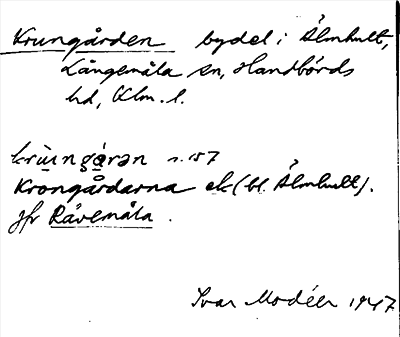 Krungården bydel i Älmhult,
Långemåla sn, Handbörds
hd, Klm. l.
krùngǻrən s. 157
Krongårdarna ek (bl. Älmhult).
jfr Rävemåla.
Ivar Modéer 1947